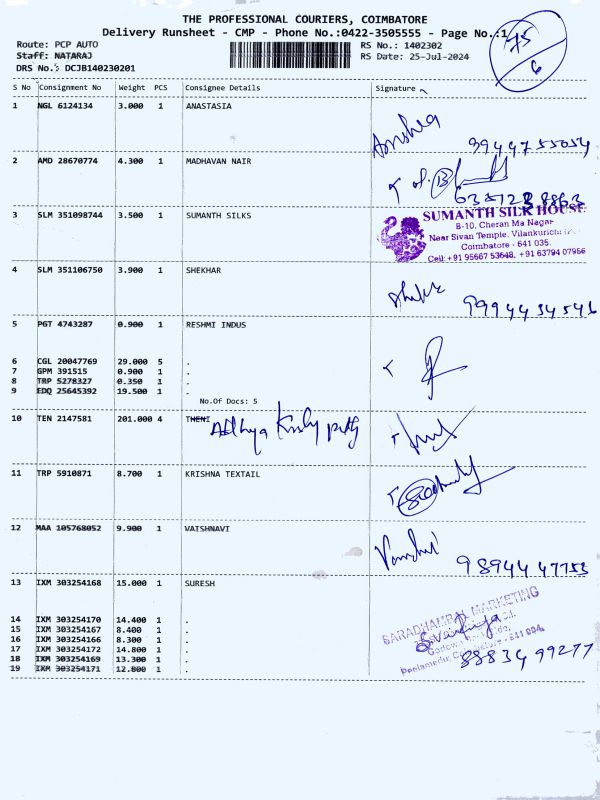 THE PROFESSIONAL COURIERS, COIMBATORE
Delivery Runsheet - CMP - Phone No.:0422-3505555 - Page No.:1
75
6
Route: PCP AUTO RS No.: 1402302
Staff: NATARAJ RS Date: 25-Jul-2024
DRS No.: DCJB140230201
S No Consignment No Weight PCS Consignee Details Signature
1 NGL 6124134 3.000 1 ANASTASIA
9944755054
2 AMD 28670774 4.300 1 MADHAVAN NAIR
3 SLM 351098744 3.500 1 SUMANTH SILKS
SUMANTH SILK HOUSE
B-10, Cheran Ma Nagar
Near Sivan Temple, Vilankurichi
Coimbatore - 641 035.
Cell: +91 95667 53648, +91 63794 07956
4 SLM 351106750 3.900 1 SHEKHAR
9994434546
5 PGT 4743287 0.900 1 RESHMI INDUS
6 CGL 20047769 29.000 5 .
7 GPM 391515 0.900 1 .
8 TRP 5278327 0.350 1 .
9 EDQ 25645392 19.500 1 .
No.Of Docs: 5
10 TEN 2147581 201.000 4 THENI
11 TRP 5910871 8.700 1 KRISHNA TEXTAIL
12 MAA 105768052 9.900 1 VAISHNAVI
9894447753
13 IXM 303254168 15.000 1 SURESH
SARADHAMBAL MARKETING
14 IXM 303254170 14.400 1 .
15 IXM 303254167 8.400 1 .
16 IXM 303254166 8.300 1 .
17 IXM 303254172 14.800 1 .
18 IXM 303254169 13.300 1 .
19 IXM 303254171 12.800 1 .
8883499277